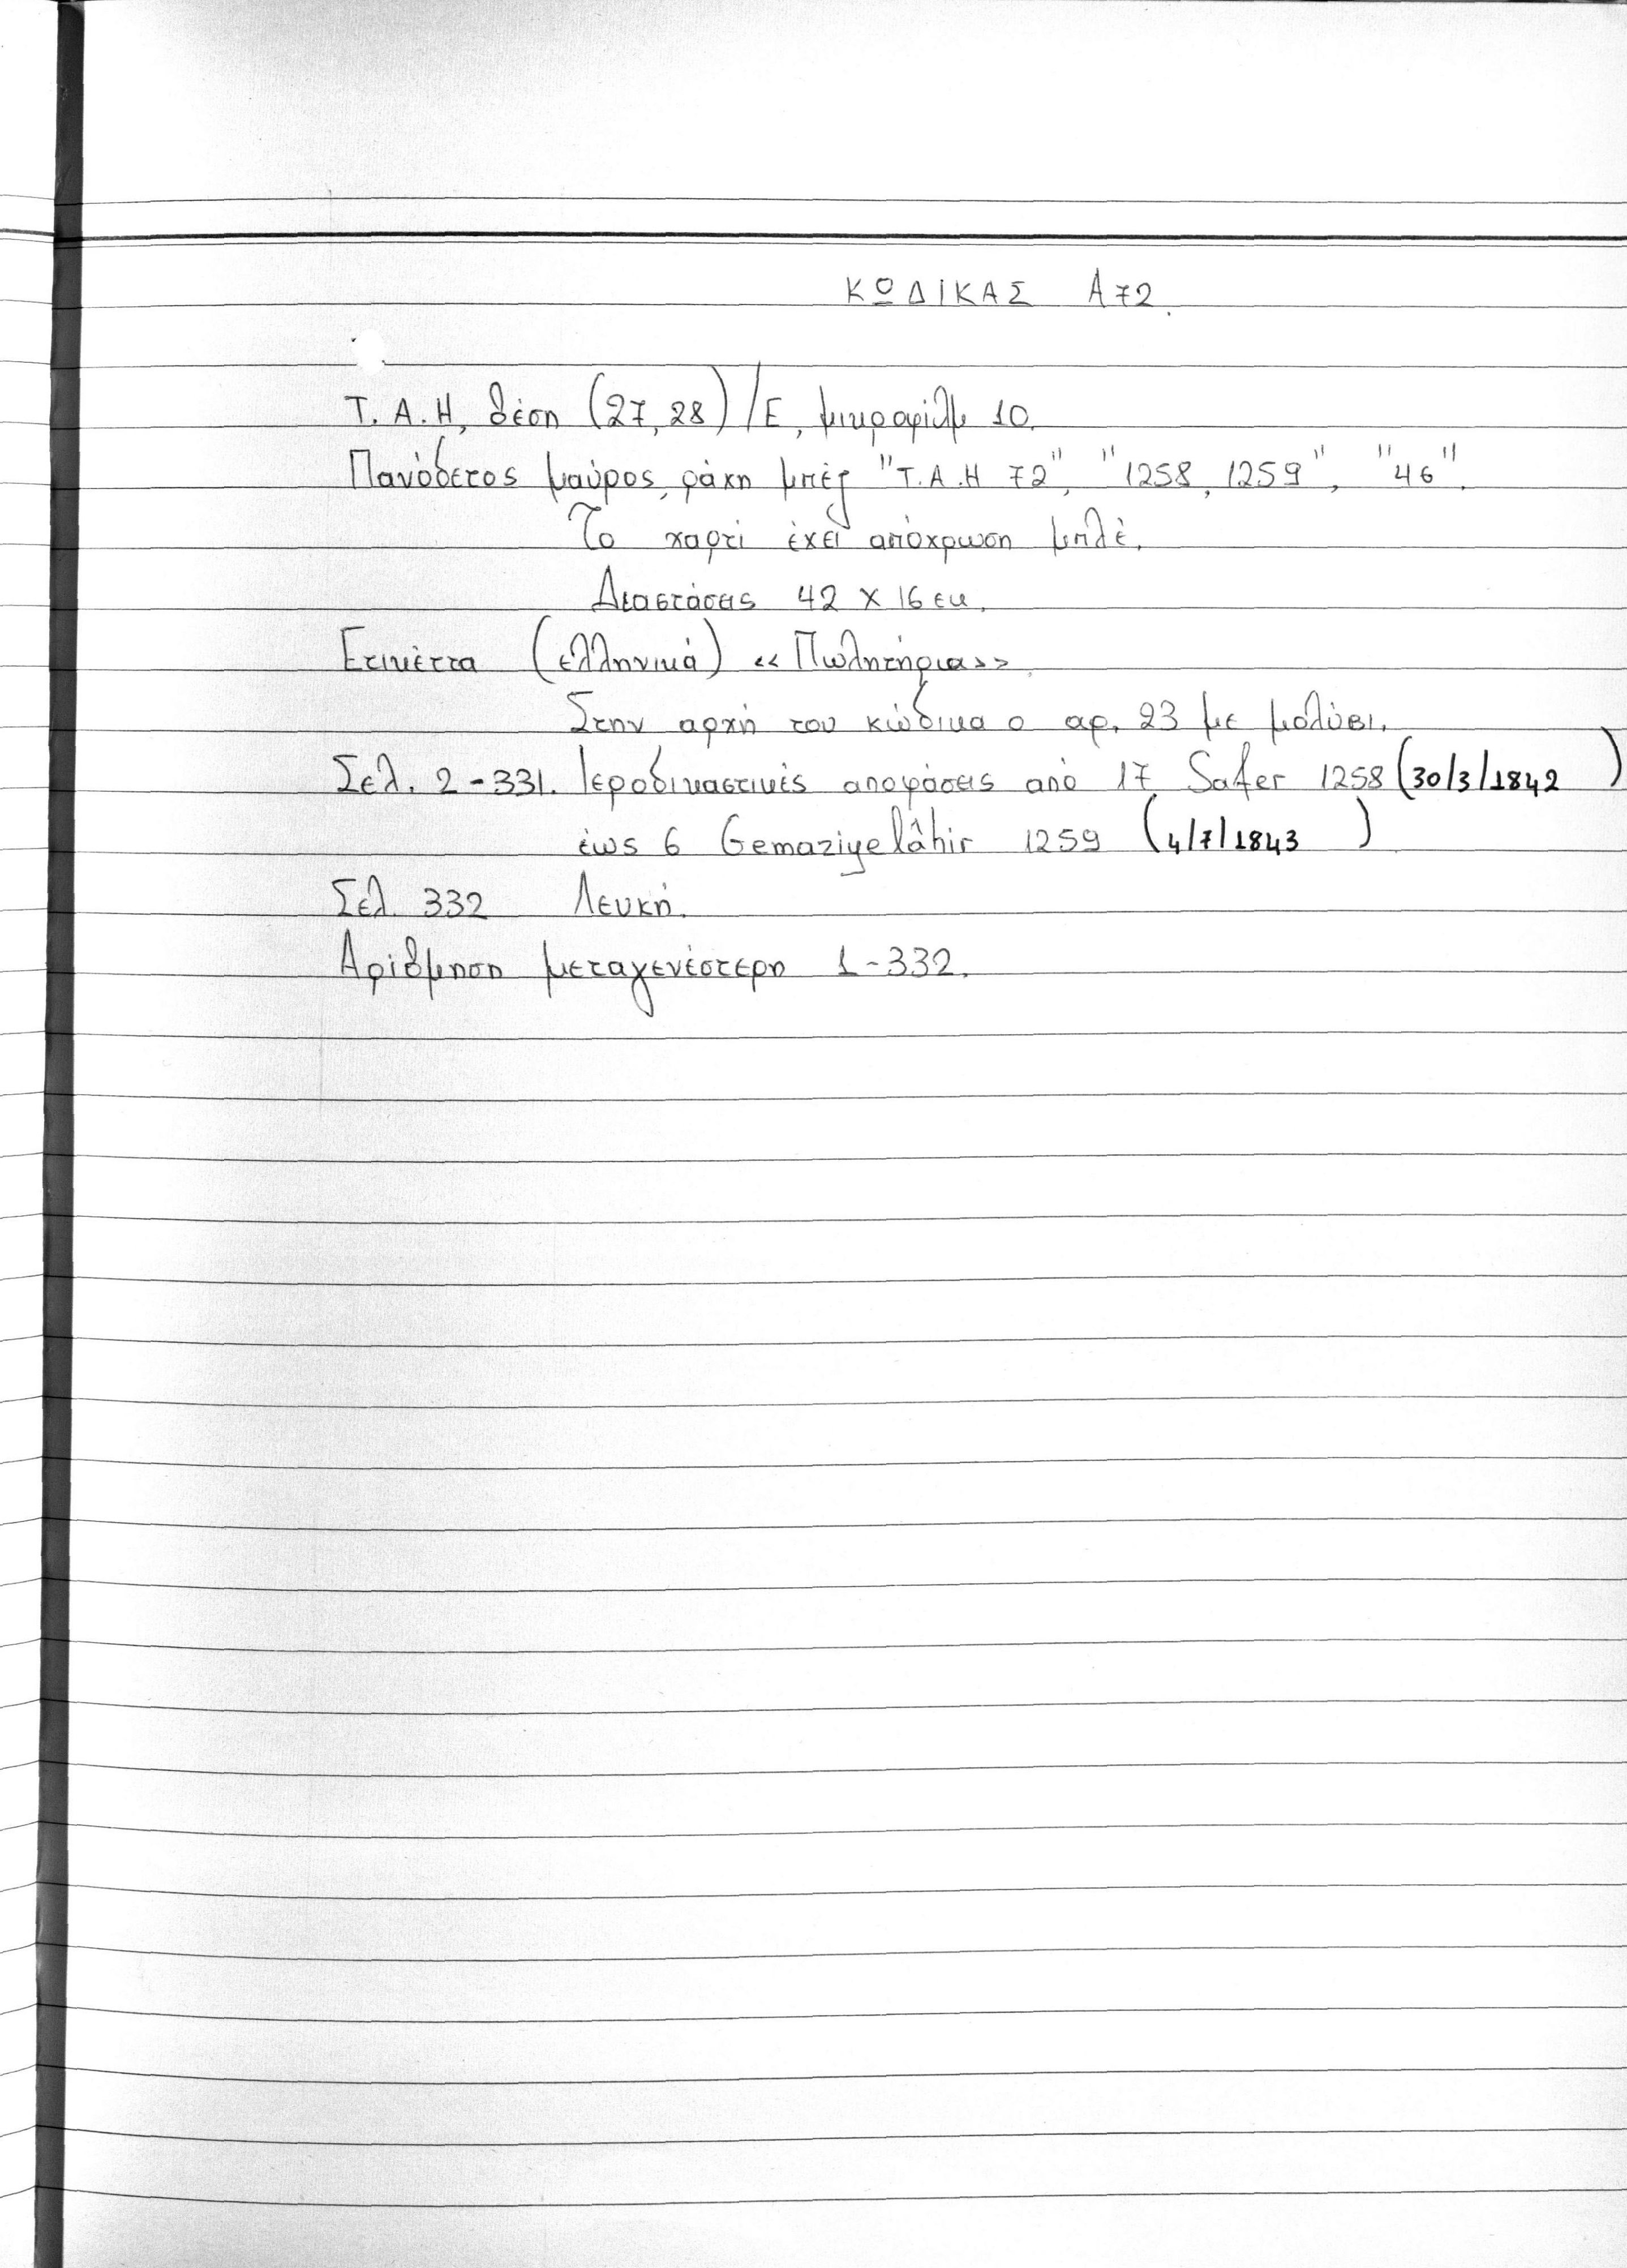 ΚΩΔΙΚΑΣ Α72.
Τ.Α.Η, θέση (27,28)/Ε, μικροφίλμ 10.
Πανόδετος μαύρος, ράχη μπέζ "Τ.Α.Η 72", "1258, 1259", "46".
Το χαρτί έχει απόχρωση μπλέ.
Διαστάσεις 42 x 16 εκ.
Ετικέττα (ελληνικά) «Πωλητήρια».
Στην αρχή του κώδικα ο αρ. 23 με μολύβι.
Σελ. 2-331. Ιεροδικαστικές αποφάσεις από 17 Safer 1258 (30/3/1842)
έως 6 Gemaziyelâhir 1259 (4/7/1843)
Σελ. 332 Λευκή.
Αρίθμηση μεταγενέστερη 1-332.